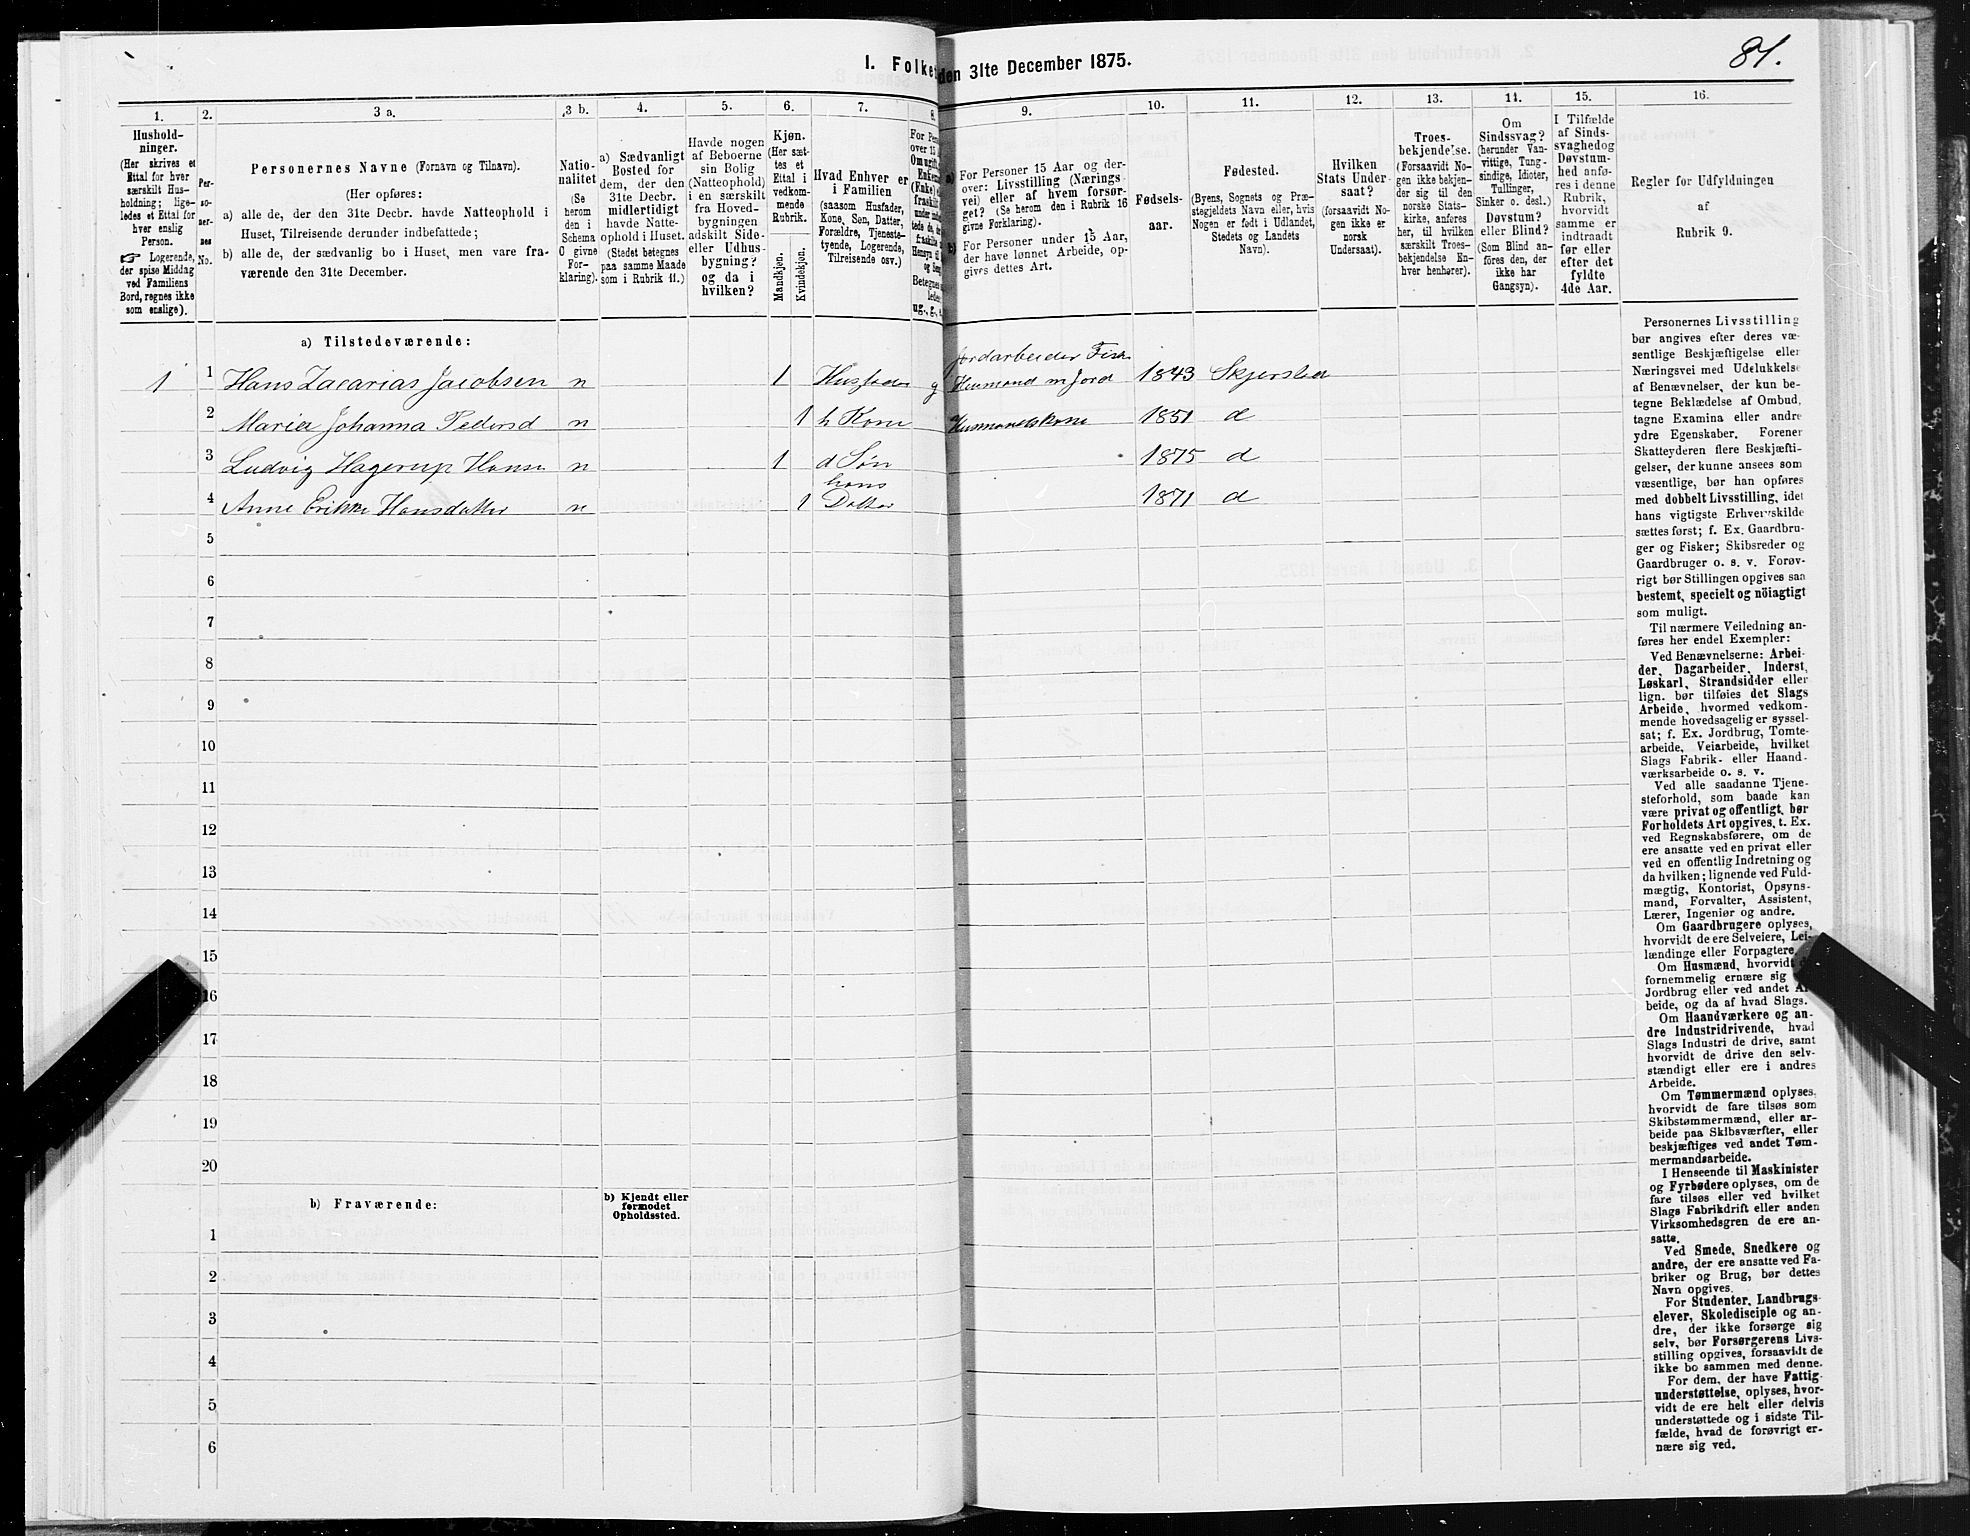 I. Folke
den 31te December 1875.
81.
1.
Hushold-
ninger.
(Her skrives et
Ettal for hver
særskilt Hus-
holdning; lige-
ledes et Ettal for
hver enslig
Person.
☞ Logerende,
der spise Middag
ved Familiens
Bord, regnes ikke
som enslige).
2.
Per-
so-
ner-
nes
No.
3 a.
Personernes Navne (Fornavn og Tilnavn).
(Her opføres:
a) alle de, der den 31te Decbr. havde Natteophold i
Huset, Tilreisende derunder indbefattede;
b) alle de, der sædvanlig bo i Huset, men vare fra-
værende den 31te December.
3 b.
Natio-
nalitet
(Se
herom
den i
Schema
O givne
For-
klaring).
4.
a) Sædvanligt
Bosted for
dem, der den
31te Decbr.
midlertidigt
havde Natte-
ophold i Huset.
(Stedet betegnes
paa samme Maade
som i Rubrik 11.)
5.
Havde nogen
af Beboerne
sin Bolig
(Natteophold)
i en særskilt
fra Hoved-
bygningen
adskilt Side-
eller Udhus-
bygning?
og da i
hvilken?
6.
Kjøn.
(Her sæt-
tes et
Ettal i
vedkom-
mende
Rubrik.
Mandkjøn.
Kvindekjøn.
7.
Hvad Enhver er
i Familien
(saasom Husfader,
Kone, Søn, Datter,
Forældre, Tjeneste-
tyende, Logerende,
Tilreisende osv.)
8.
9.
a) For Personer 15 Aar og der-
over: Livsstilling (Nærings-
vei) eller af hvem forsør-
get? (Se herom den i Rubrik 16
givne Forklaring).
b) For Personer under 15 Aar,
der have lønnet Arbeide, op-
gives dettes Art.
10.
Fødsels-
aar.
11.
Fødested.
(Byens, Sognets og Præ-
stegjeldets Navn eller, hvis
Nogen er født i Udlandet,
Stedets og Landets
Navn).
12.
Hvilken
Stats Under-
saat?
(forsaavidt No-
gen ikke er
norsk
Undersaat).
13.
Troes-
bekjendelse.
(Forsaavidt No-
gen ikke bekjen-
der sig til den
norske Stats-
kirke, anføres
her, til hvilken
særskilt Troes-
bekjendelse En-
hver henhører).
14.
Om
Sindssvag?
(herunder Van-
vittige, Tung-
sindige, Idioter,
Tullinger,
Sinker o. desl.)
Døvstum?
eller Blind?
(Som Blind an-
føres den, der
ikke har
Gangsyn).
15.
I Tilfælde
af Sinds-
svaghed og
Døvstum-
hed anfø-
res i denne
Rubrik,
hvorvidt
samme er
indtraadt
før eller
efter det
fyldte
4de Aar.
16.
Regler for Udfyldningen
af
Rubrik 9.
a) Tilstedeværende:
Jordarbeider Fisk
1 1 Hans Zacarias Jacobsen n 1 Husfader g Husmand m Jord 1843 Skjerstad
2 Maria Johanna Pedersd n 1 h Kone Husmandskone 1851 d
3 Ludvig Hagerup Hansen n 1 d Søn 1875 d
hans
4 Anne Erikke Hansdatter n 1 Datter 1871 d
5
6
7
8
9
10
11
12
13
14
15
16
17
18
19
20
b) Fraværende:
b) Kjendt eller
formodet
Opholdssted.
1
2
3
4
5
6
Personernes Livsstilling
bør angives efter deres væ-
sentlige Beskjæftigelse eller
Næringsvei med Udelukkelse
af Benævnelser, der kun be-
tegne Beklædelse af Ombud,
tagne Examina eller andre
ydre Egenskaber. Forener
Skatteyderen flere Beskjæfti-
gelser, der kunne ansees som
væsentlige, bør han opføres
med dobbelt Livsstilling, idet
hans vigtigste Erhvervskilde
sættes først; f. Ex. Gaardbru-
ger og Fisker; Skibsreder og
Gaardbruger o. s. v. Forøv-
rigt bør Stillingen opgives saa
bestemt, specielt og nöiagtigt
som muligt.
Til nærmere Veiledning an-
føres her endel Exempler:
Ved Benævnelserne: Arbei-
der, Dagarbeider, Inderst,
Løskarl, Strandsidder eller
lign. bør tilføies det Slags
Arbeide, hvormed vedkom-
mende hovedsagelig er syssel-
sat; f. Ex. Jordbrug, Tomte-
arbeide, Veiarbeide, hvilket
Slags Fabrik- eller Haand-
værksarbeide o. s. v.
Ved alle saadanne Tjene-
steforhold, som baade kan
være privat og offentligt, bør
Forholdets Art opgives, t. Ex.
ved Regnskabsførere, om de
ere ansatte ved en privat eller
ved en offentlig Indretning og
da hvilken; lignende ved Fuld-
mægtig, Kontorist, Opsyns-
mand, Forvalter, Assistent,
Lærer, Ingeniør og andre.
Om Gaardbrugere oplyses,
hvorvidt de ere Selveiere, Lei-
lændinge eller Forpagtere.
Om Husmænd, hvorvidt
fornemmelig ernære sig
Jordbrug eller ved andet Ar-
beide, og da af hvad Slags.
Om Haandværkere og an-
dre Industridrivende, hvad
Slags Industri de drive, samt
hvorvidt de drive den selv-
stændigt eller ere i andres
Arbeide.
Om Tømmermænd oplyses,
hvorvidt de fare tilsøs som
Skibstømmermænd, eller ar-
beide paa Skibsværfter, eller
beskjæftiges ved andet Tøm-
mermandsarbeide.
I Henseende til Maskinister
og Fyrbødere oplyses, om de
fare tilsøs eller ved hvilket
Slags Fabrikdrift eller anden
Virksomhedsgren de ere an-
satte.
Ved Smede, Snedkere og
andre, der ere ansatte ved Fa-
briker og Brug, bør dettes
Navn opgives.
For Studenter, Landbrugs-
elever, Skoledisciple og an-
dre, der ikke forsørge sig
selv, bør Forsørgerens Livs-
stilling opgives, forsaavidt de
ikke bo sammen med denne.
For dem, der have Fattig-
understøttelse, oplyses, hvor-
vidt de ere helt eller delvis
understøttede og i sidste Til-
fælde, hvad de forøvrigt er-
nære sig ved.